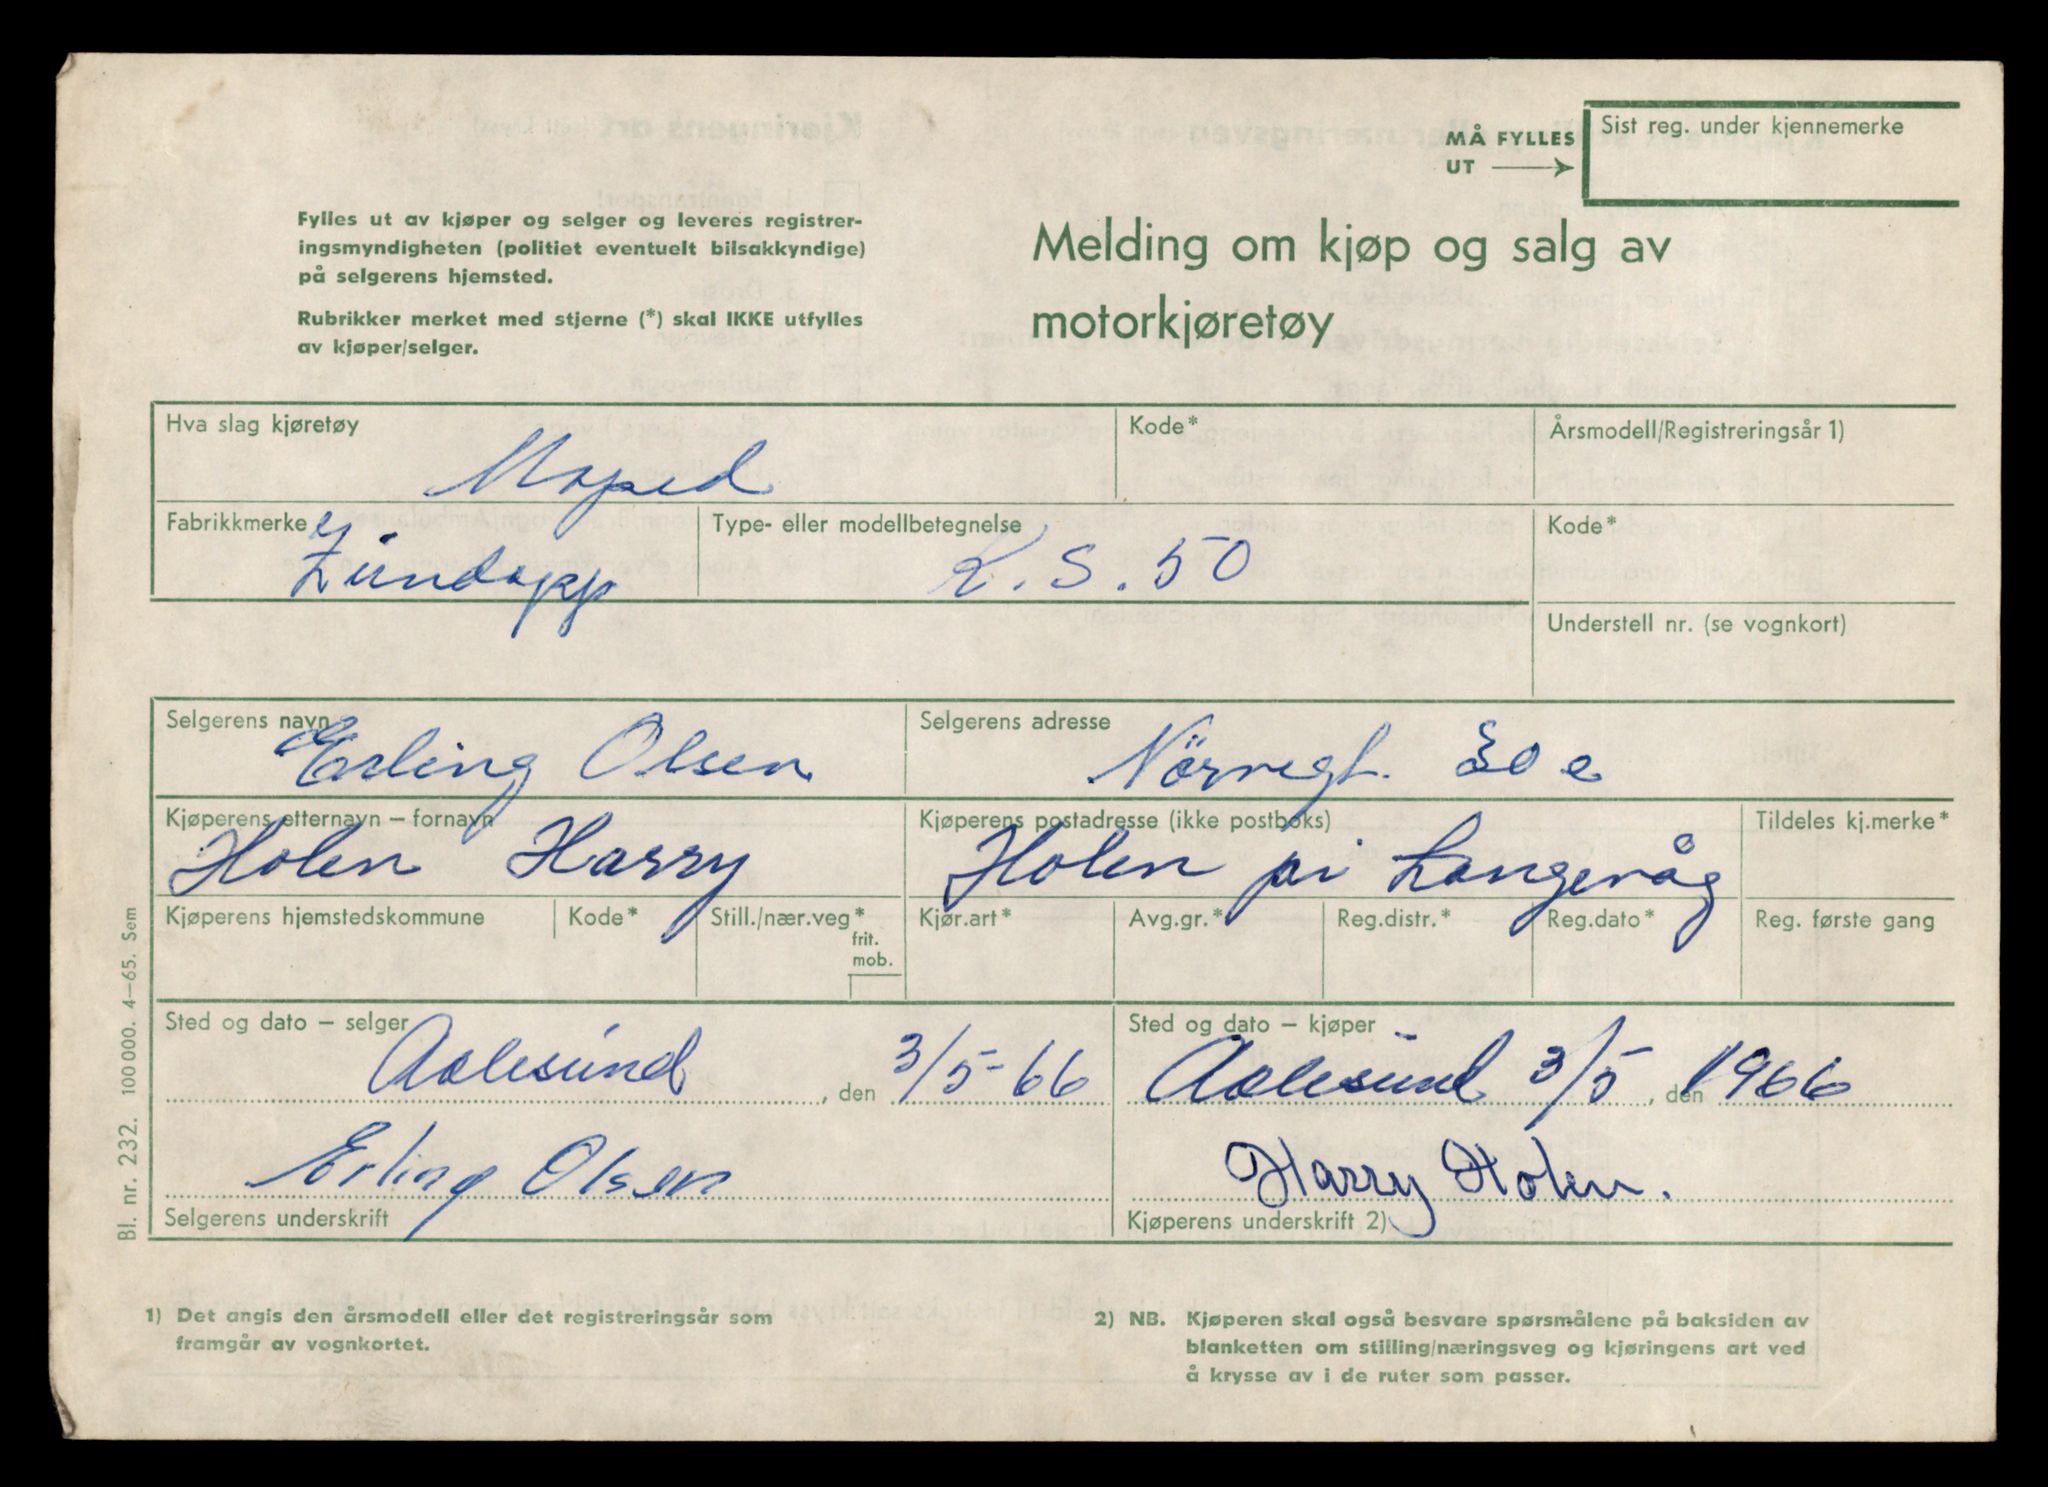 MÅ FYLLES
UT
Sist reg. under kjennemerke
Fylles ut av kjøper og selger og leveres registrer-
ingsmyndigheten (politiet eventuelt bilsakkyndige)
på selgerens hjemsted.
Rubrikker merket med stjerne (*) skal IKKE utfylles
av kjøper/selger.
Melding om kjøp og salg av
motorkjøretøy
Hva slag kjøretøy
Moped
Kode*
Årsmodell/Registreringsår 1)
Fabrikkmerke
Zündapp
Type- eller modellbetegnelse
K.S.50
Kode*
Understell nr. (se vognkort)
Selgerens navn
Erling Olsen
Selgerens adresse
Nörregt. 30 e
Kjøperens etternavn – fornavn
Holen Harry
Kjøperens postadresse (ikke postboks)
Holen pi Langevåg
Tildeles kj.merke*
Kjøperens hjemstedskommune
Kode*
Still./nær.veg*
frit.
mob.
Kjør.art*
Avg.gr.*
Reg.distr.*
Reg.dato*
Reg. første gang
Sted og dato – selger
Aalesund, den 3/5-66
Sted og dato – kjøper
Aalesund 3/5, den 1966
Erling Olsen
Selgerens underskrift
Harry Holen.
Kjøperens underskrift 2)
Bl. nr. 232. 100 000. 4–65. Sem
1) Det angis den årsmodell eller det registreringsår som
framgår av vognkortet.
2) NB. Kjøperen skal også besvare spørsmålene på baksiden av
blanketten om stilling/næringsveg og kjøringens art ved
å krysse av i de ruter som passer.